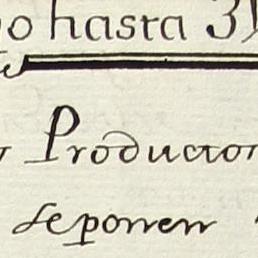 hasta 3
Productor
se ponen